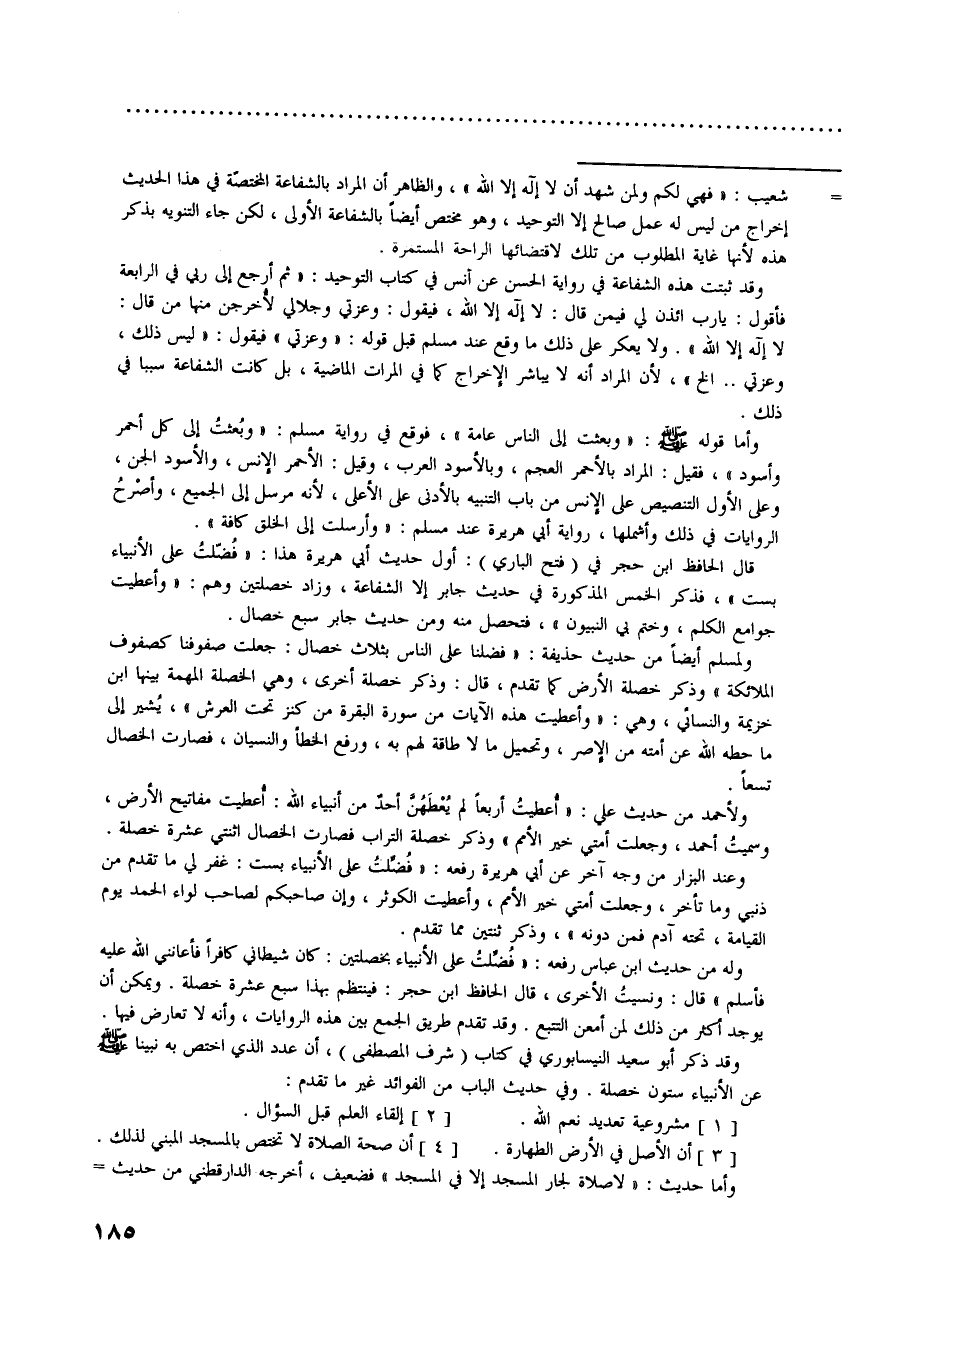 = شعيب : « فهي لكم ولمن شهد أن لا إلٓه إلا الله » ، والظاهر أن المراد بالشفاعة المختصّة في هذا الحديث
إخراج من ليس له عمل صالح إلا التوحيد ، وهو مختص أيضاً بالشفاعة الأولى ، لكن جاء التنويه بذكر
هذه لأنها غاية المطلوب من تلك لاقتضائها الراحة المستمرة .
وقد ثبتت هذه الشفاعة في رواية الحسن عن أنس في كتاب التوحيد : « ثم أرجع إلى ربي في الرابعة
فأقول : يارب ائذن لي فيمن قال : لا إلٓه إلا الله ، فيقول : وعزتي وجلالي لأخرجن منها من قال :
لا إلٓه إلا الله » . ولا يعكر على ذلك ما وقع عند مسلم قبل قوله : « وعزتي » فيقول : « ليس ذلك ،
وعزتي .. الخ » ، لأن المراد أنه لا يباشر الإخراج كما في المرات الماضية ، بل كانت الشفاعة سببا في
ذلك .
وأما قوله ﷺ : « وبعثت إلى الناس عامة » ، فوقع في رواية مسلم : « وبُعثتُ إلى كل أحمر
وأسود » ، فقيل : المراد بالأحمر العجم ، وبالأسود العرب ، وقيل : الأحمر الإنس ، والأسود الجن ،
وعلى الأول التنصيص على الإنس من باب التنبيه بالأدنى على الأعلى ، لأنه مرسل إلى الجميع ، وأصْرحُ
الروايات في ذلك وأشملها ، رواية أبي هريرة عند مسلم : « وأرسلت إلى الخلق كافة » .
قال الحافظ ابن حجر في ( فتح الباري ) : أول حديث أبي هريرة هذا : « فُضّلتُ على الأنبياء
بست » ، فذكر الخمس المذكورة في حديث جابر إلا الشفاعة ، وزاد خصلتين وهم : « وأعطيت
جوامع الكلم ، وختم بي النبيون » ، فتحصل منه ومن حديث جابر سبع خصال .
ولمسلم أيضاً من حديث حذيفة : « فضلنا على الناس بثلاث خصال : جعلت صفوفنا كصفوف
الملائكة » وذكر خصلة الأرض كما تقدم ، قال : وذكر خصلة أخرى ، وهي الخصلة المهمة بينها ابن
خزيمة والنسائي ، وهي : « وأعطيت هذه الآيات من سورة البقرة من كنز تحت العرش » ، يُشير إلى
ما حطه الله عن أمته من الإصر ، وتحميل ما لا طاقة لهم به ، ورفع الخطأ والنسيان ، فصارت الخصال
تسعاً .
ولأحمد من حديث علي : « أُعطيتُ أربعاً لم يُعْطَهُنَّ أحدٌ من أنبياء الله : أُعطيت مفاتيح الأرض ،
وسميتُ أحمد ، وجعلت أمتي خير الأمم » وذكر خصلة التراب فصارت الخصال اثنتي عشرة خصلة .
وعند البزار من وجه آخر عن أبي هريرة رفعه : « فُضّلتُ على الأنبياء بست : غفر لي ما تقدم من
ذنبي وما تأخر ، وجعلت أمتي خير الأمم ، وأعطيت الكوثر ، وإن صاحبكم لصاحب لواء الحمد يوم
القيامة ، تحته آدم فمن دونه » ، وذكر ثنتين مما تقدم .
وله من حديث ابن عباس رفعه : « فُضّلتُ على الأنبياء بخصلتين : كان شيطاني كافراً فأعانني الله عليه
فأسلم » قال : ونسيتُ الأخرى ، قال الحافظ ابن حجر : فينتظم بهذا سبع عشرة خصلة . ويمكن أن
يوجد أكثر من ذلك لمن أمعن التتبع . وقد تقدم طريق الجمع بين هذه الروايات ، وأنه لا تعارض فيها .
وقد ذكر أبو سعيد النيسابوري في كتاب ( شرف المصطفى ) ، أن عدد الذي اختص به نبينا ﷺ
عن الأنبياء ستون خصلة . وفي حديث الباب من الفوائد غير ما تقدم :
[ ١ ] مشروعية تعديد نعم الله . [ ٢ ] إلقاء العلم قبل السؤال .
[ ٣ ] أن الأصل في الأرض الطهارة . [ ٤ ] أن صحة الصلاة لا تختص بالمسجد المبني لذلك .
وأما حديث : « لاصلاة لجار المسجد إلا في المسجد » فضعيف ، أخرجه الدارقطني من حديث =
١٨٥